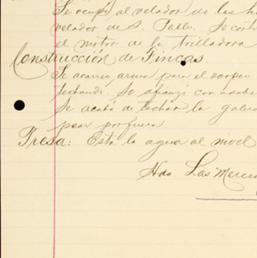 Se ocupó al velador de las h
velador de S. Pablo. Se cort
el motor de la trilladora
Construcción de Fincas.
Se acarreó arena para el zarpeo
techando. Se
Se acabó de techar la gale
por fuera
Presa: Está la agua al nivel
Hda. Las Merce